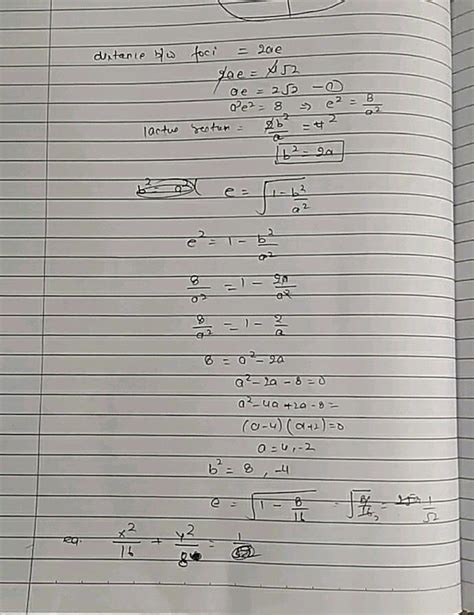 distance b/w foci = 2ae
2ae = 4√2
ae = 2√2 —①
a²e² = 8 ⇒ e² = 8/a²
lactus rectum = 2b²/a = 4 2
b² = 2a
b² = a²( e = √(1 - b²/a²)
e² = 1 - b²/a²
8/a² = 1 - 2a/a²
8/a² = 1 - 2/a
8 = a² - 2a
a² - 2a - 8 = 0
a² - 4a + 2a - 8 =
(a-4)(a+2) = 0
a = 4, -2
b² = 8, -4
e = √(1 - 8/16) = √(8/16) = 1/√2
eq. x²/16 + y²/8 = 1